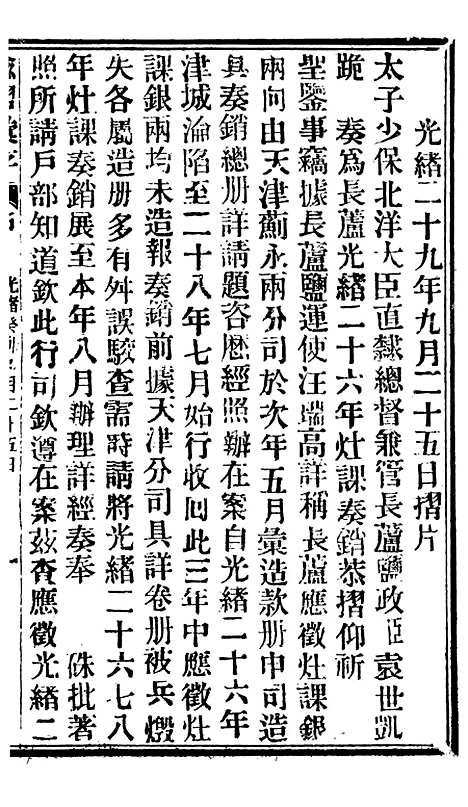 光緒二十九年九月二十五日摺片
太子少保北洋大臣直隸總督兼管長蘆鹽政臣袁世凱
跪　奏爲長蘆光緒二十六年灶課奏銷恭摺仰祈
聖鑒事竊據長蘆鹽運使汪瑞高詳稱長蘆應徵灶課銀
兩向由天津薊永兩分司於次年五月彙造款册申司造
具奏銷總册詳請題咨歷經照辦在案自光緒二十六年
津城淪陷至二十八年七月始行收回此三年中應徵灶
課銀兩均未造報奏銷前據天津分司具詳卷册被兵燬
失各屬造册多有舛誤駁查需時請將光緒二十六七八
年灶課奏銷展至本年八月辦理詳經奏奉　硃批著
照所請戶部知道欽此行司欽遵在案茲查應徵光緒二